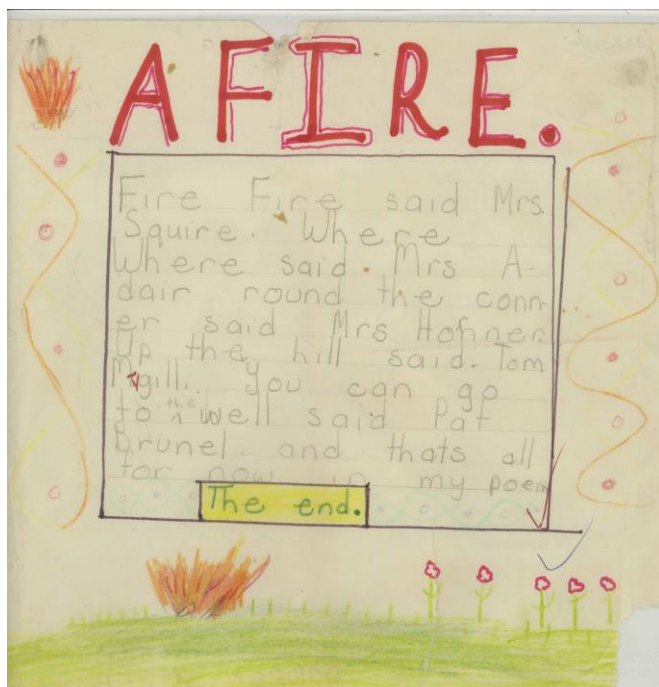 A FIRE.
Fire Fire said Mrs.
Squire. Where
Where said. Mrs A-
dair round the conn-
er said Mrs Hofner.
Up the hill said. Tom
Mgill. You can go
to the well said Pat
Brunel. and thats all
for now in my poem
The end.